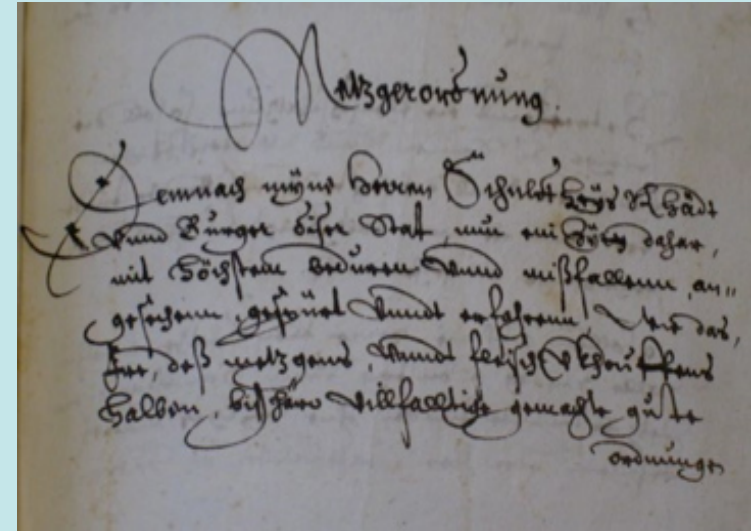 Metzgerordnung.
Demnach myne Herren Schultheÿs Rhädt
vnnd Burger diser Stat, nun ein Zÿtt dahar,
mit höchstem beduren vnnd mißfallenn, an„
gesehenn, gespürt vnndt erfahrenn, Wie das,
Irer, deß metzgens, vnndt fleisch Vkhouffens
halben, bißhäro villfalltige gemachte gute
ordnungen